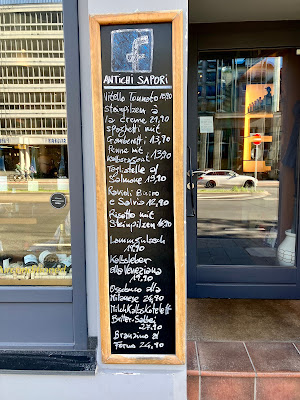 f
ANTICHI SAPORI
Vitello Tonnato 16,90
Steinpilzen a
la creme 21,90
spaghetti mit
Gamberetti 13,90
Penne mit
13,90
Tagliatelle al
Salmone 13,90
Ravioli Burro
e Salvia 12,90
Risotto mit
Steinpilzen
19,90
Kalbsleber
alla Veneziana
19,90
Ossobuco alla
Milanese 26,90
MilchKalbskotelett
Butter-Salbei
27,90
Branzino al
Forno 24,90